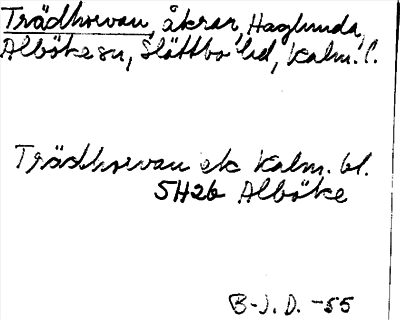 Trädhorvan, åkrar, Haglunda,
Alböke sn, Slättbo hd, Kalm. l.
Trädhorvan ek Kalm. bl.
5H2b Alböke
B-J. D. -55